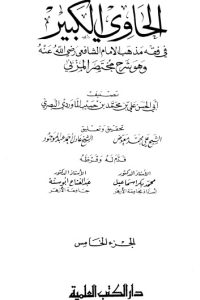 الحاوي الكبير
في فقه مذهب الإمام الشافعي رضي الله عنه
وهو شرح مختصر المزني
تصنيف
أبي الحسن علي بن محمد بن حبيب الماوردي البصري
تحقيق وتعليق
الشيخ علي محمد معوض الشيخ عادل أحمد عبد الموجود
قدم له وقرظه
الأستاذ الدكتور الأستاذ الدكتور
محمد بكر إسماعيل عبد الفتاح أبو سنة
أستاذ بجامعة الأزهر جامعة الأزهر
الجزء الخامس
دار الكتب العلمية